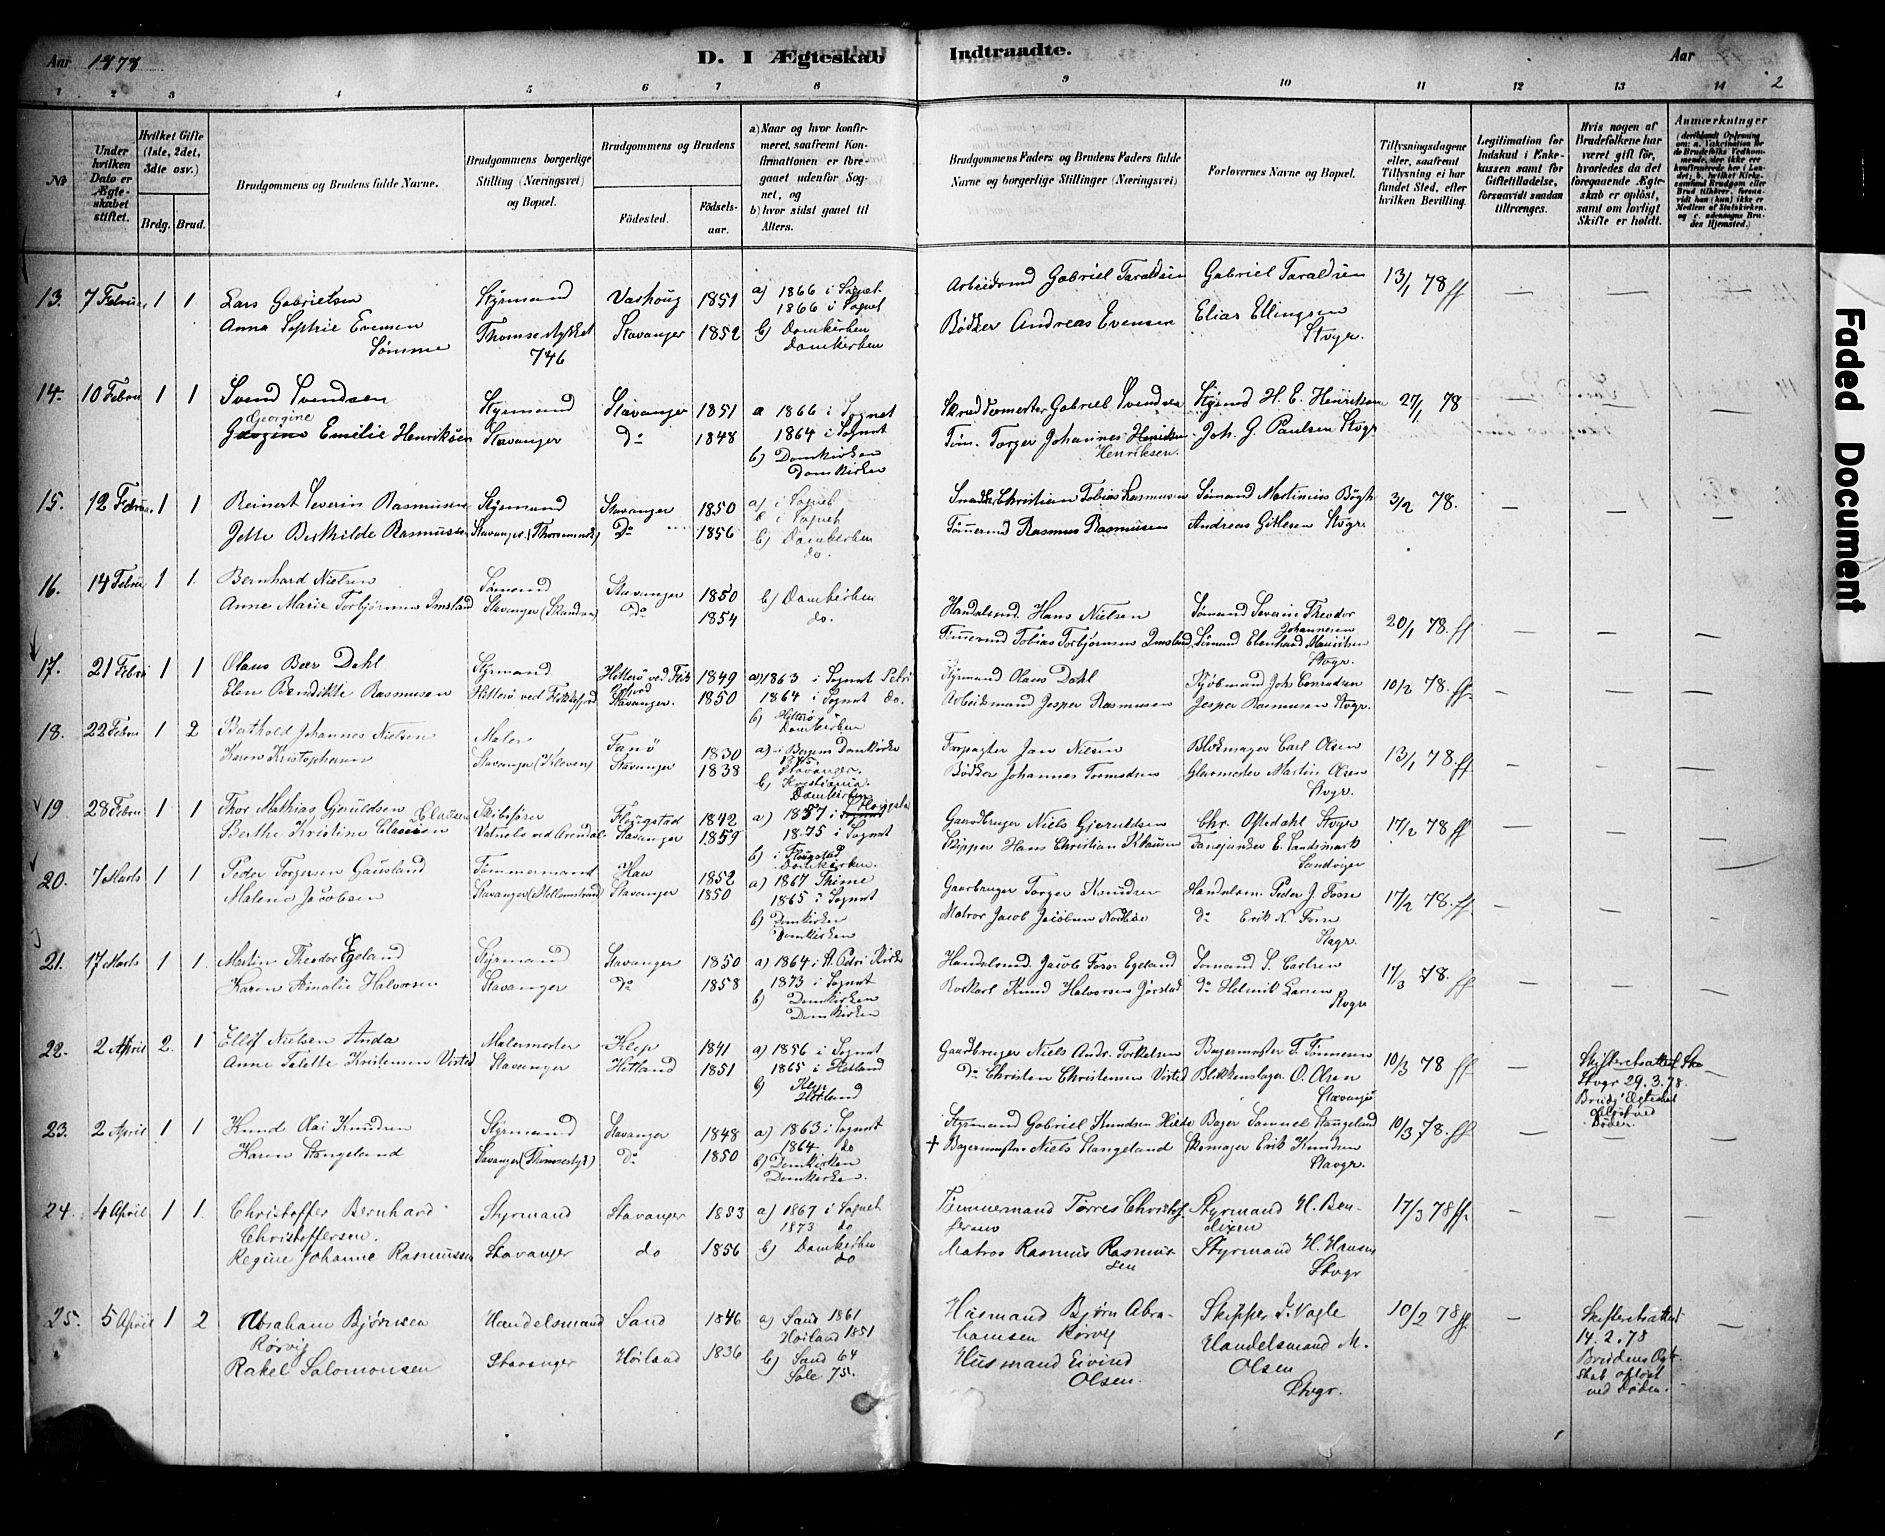 Aar 1878
D. I Ægteskab Indtraadte.
Aar
2
1 2 3 4 5 6 7 8 9 10 11 12 13 14
No
Under hvilken Dato er Ægteskabet stiftet.
Hvilket Gifte (1ste, 2det, 3die osv.)
Brdg. Brud.
Brudgommens og Brudens fulde Navne.
Brudgommens borgerlige Stilling (Næringsvei) og Bopæl.
Brudgommens og Brudens
Fødested.
Fødselsaar.
a) Naar og hvor konfirmeret, saafremt Konfirmationen er foregaaet udenfor Sognet, og
b) hvor sidst gaaet til Alters.
Brudgommens Faders og Brudens Faders fulde Navne og borgerlige Stillinger (Næringsvei)
Forlovernes Navne og Bopæl.
Tillysningsdagene eller, saafremt Tillysning ei har fundet Sted, efter hvilken Bevilling.
Legitimation for Indskud i Enkekassen samt for Giftetilladelse, forsaavidt saadan tiltrænges.
Hvis nogen af Brudefolkene har været gift før, hvorledes da det foregaaende Ægteskab er opløst, samt om lovligt Skifte er holdt.
Anmærkninger
13. 7 Februar 1 1 Lars Gabrielsen Styrmand Varhoug 1851 a) 1866 i Sognet Arbeidsmd Gabriel Taraldsen Gabriel Taraldsen 13/1 78 ff — — —
Anna Sophie Evensen Thomsestykket Stavanger 1852 1866 i Sognet Bødker Andreas Evensen Elias Ellingsen
Sømme 746 b) Domkirken Stvgr.
Domkirken
14. 10 Febru 1 1 Svend Svendsen Styrmand Stavanger 1851 a 1866 i Sognet Skræddermester Gabriel Svendsen Styrmd H. E. Henriksen 27/1 78
Georgine
Georgine Emilie Henriksen Stavanger Do 1848 1864 i Sognet Tøm. Torger Johannes Henriksen Joh. G. Paulsen Stvgr
b) Domkirken Henriksen.
Domkirken
15. 12 Februar 1 1 Reinert Severin Rasmussen Styrmand Stavanger 1850 a) i Sognet Christian Tobias Rasmussen Sømand Martinius Bøgh 3/2 78. — — —
Jette Berthilde Rasmussen Stavanger Do 1856 i Sognet Tømmermd Rasmus Rasmussen Andreas Gitlesen Stvgr.
b) Domkirken
do.
16. 14 Febru 1 1. Bernhard Nielsen Sømand Stavanger 1850 b) Domkirken Handelsmd. Hans Nielsen Sømand Severin Theodor 20/1 78. ff — — —
Anne Marie Torbjørnsen Imsland Stavanger Do 1854 do. Tømmermd Tobias Torbjørnsen Imsland Johannesen
Sømand Stvgr.
17. 21 Febru 1 1 Olaus Beer Dahl Styrmand Hitterø ved 1849 a) 1863 i Sognet Petri Styrmand Olaus Dahl Kjøbmand Joh. Conradsen 10/2 78. ff — — —
Elen Bendikte Rasmussen Hitterø ved Stavanger. 1850 1864 i Sognet do. Arbeidsmand Jesper Rasmussen Jesper Rasmussen Stvgr.
b) Hitterø
Domkirken
18. 22 Febru 1 2 Berthold Johannes Nielsen Maler Fanø 1830 a) i Bergens Domkirke Forpagter Jan Nielsen Blokmager Carl Olsen 13/1 78. ff — — —
Karen Kristophersen Stavanger (Kleven) Stavanger 1838 Stavanger. Bødker Johannes Tormodsen Glarmester Martin Olsen
b) Kristiania Stvgr.
Domkirken
19 28 Febru 1 1 Thor Mathias Gjeruldsen Skibsfører 1842 a) 1857 i Gaardbruger Niels Gjeruldsen Chr. Aftedahl Stvgr 17/2 78 ff — — —
Clausen
Berthe Kristine Stavanger 1859 1875 i Sognet Skipper Hans Christian Klausen E. Landsmark
b) i Sandviger
Domkirken.
20. 7 Marts 1 1 Peder Torgersen Gausland Tømmermand Haa 1852 a) 1867 Thime Gaardbruger Torger Knudsen Handelsm. Peder J. Fosse 17/2 78. ff — — —
Malene Jacobsen Stavanger Stavanger 1850 1865 i Sognet Matros Jacob Jacobsen do Erik N. Fosse
b) Domkirken Stvgr.
Domkirken
21. 17 Marts 1 1. Martin Theodor Egeland Styrmand Stavanger 1850 a) 1864 i St. Petri Kirke Handelsmd. Jacob Egeland Sømand S. Carlsen 17/3 78. ff — — —
Karen Amalie Halvorsen Stavanger Do 1858 1873 i Sognet Knud Halvorsen Jørstad do Helmik Larsen
b) Domkirken Stvgr
Domkirken
22. 2 April 2. 1 Ellof Nielsen Anda Malermester Klep 1841 a) 1856 i Sognet Gaardbruger Niels Andr. Torkelsen Bagermester T. Tønnesen 10/3 78 ff Skifteretsattest
Anne Talette Kristensen Vistad Stavanger Hetland 1851 1865 i Hetland Do Christen Christensen Vistad Blikkenslager O. Olsen Stvgr 29.3.78.
b) Klep Stavanger Brudg. Ægteskab
Hetland opløst ved Døden.
23. 2 April 1 1 Knud Aai Knudsen Styrmand Stavanger 1848 a) 1863 i Sognet Styrmand Gabriel Knudsen Bager Samuel Stangeland 10/3 78. ff — — —
Karen Stangeland Stavanger (Thomsestyk) Do 1850 1864 do + Bagermester Niels Stangeland Skomager Erik Knudsen
b) Domkirken Stavgr.
Domkirken.
24. 4 April 1 1. Christoffer Bernhard Styrmand Stavanger 1853 a) 1867 i Sognet Tømmermand Tørres Christof- Styrmand H. Ben- 17/3 78 ff. — — —
Christoffersen. 1873 do fersens dixen
Regine Johanne Rasmussen Stavanger do 1856 b) Domkirken Matros Rasmus Rasmus- Styrmand H. Hansen
do sen Stvgr
25. 5 April 1 2 Abraham Bjørnsen Handelsmand Sand 1846 a) Sand 1861 Husmand Bjørn Abra- Skipper I. Vagle 10/2 78 ff — Skifteretsattest —
Rørvig Høiland 1851 hamsen Rørvig Handelsmand M. 14.2.78
Rakel Salomonsen Stavanger Høiland 1836 b) Sand 64 Husmand Eivind Olsen Brudens Ægte-
Sole 75. Olsen. Stvgr. skab opløst
ved Døden.
Faded Document